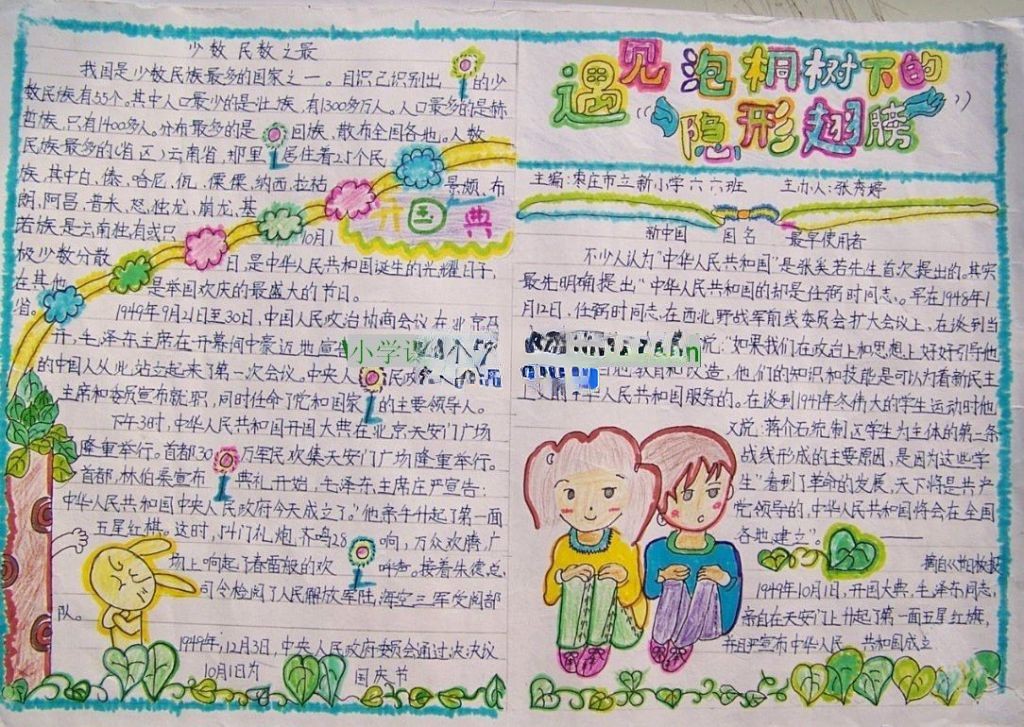 少数民族之最
我国是少数民族最多的国家之一。目识己识别出的少
数民族有55个。其中人口最少的是壮族,有1300多万人。人口最多的是赫
哲族,只有1400多人。分布最多的是回族、散布全国各地。人数
民族最多的(省区)云南省,那里居住着25个民
族,其中白、傣、哈尼、佤、傈僳、纳西、拉祜、景颇、布
朗、阿昌、普米、怒、独龙、崩龙、基
若族是云南独有或只
极少数分散
在其他
省。
开国大典
10月1
日,是中华人民共和国诞生的光耀日子,
是举国欢庆的最盛大的节日。
1949年9月21日至30日,中国人民政治协商会议在北京召
开,毛泽东主席在开幕词中豪迈地宣
的中国人从此站立起来了第一次会议。中央人民政
主席和委员宣布就职,同时任命了党和国家的主要领导人。
下午3时,中华人民共和国开国大典在北京天安门广场
隆重举行。首都30万军民欢集天安门广场隆重举行。
首都,林伯渠宣布典礼开始,毛泽东主席庄严宣告:
中华人民共和国中央人民政府今天成立了。"他亲手升起了第一面
五星红旗。这时,54门礼炮,齐鸣28响,万众欢腾,广
场上响起了春雷般的欢呼声。接着朱德总
司令检阅了人民解放军陆,海空三军受阅部
队。
1949年,12月3日,中央人民政府委员会通过决决议
10月1日为国庆节
遇见泡桐树下的
((隐形翅膀))
主编:枣庄市立新小学六六班 主办人:张秀婷
新中国 国名 最早使用者
不少人认为"中华人民共和国"是张奚若先生首次提出的。其实
最先明确提出"中华人民共和国的却是任弼时同志。早在1948年1
月12日,任弼时同志在西北野战军前线委员会扩大会议上,在谈到当
说:"如果我们在政治上和思想上好好引导他
教育和改造,他们的知识和技能是可以为看新民主
华人民共和国服务的。在谈到1947年冬伟大的学生运动时他
又说:蒋介石统制区学生为主体的第二条
战线形成的主要原因,是因为这些学
生"看到了革命的发展,天下将是共产
党领导的,中华人民共和国将会在全国
各地建立"。——
1949年10月1日,开国大典,毛泽东同志,
亲自在天安门上升起了第一面五星红旗,
并且严宣布中华人民共和国成立